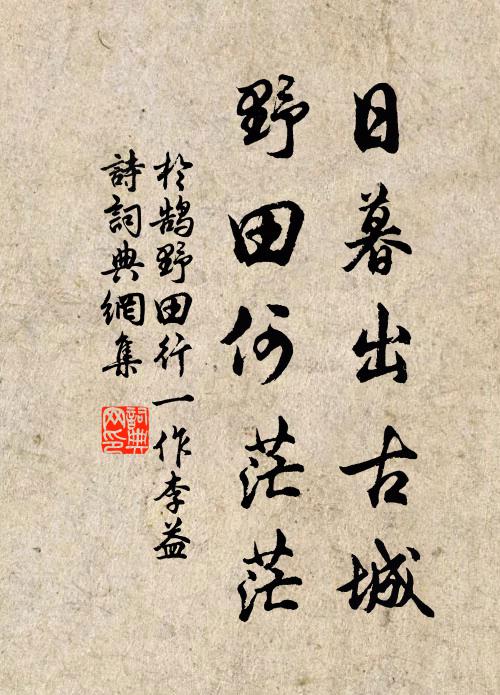 日暮出古城
野田何茫茫
於鵠野田行一作李益
詩詞典網集
詞典網印